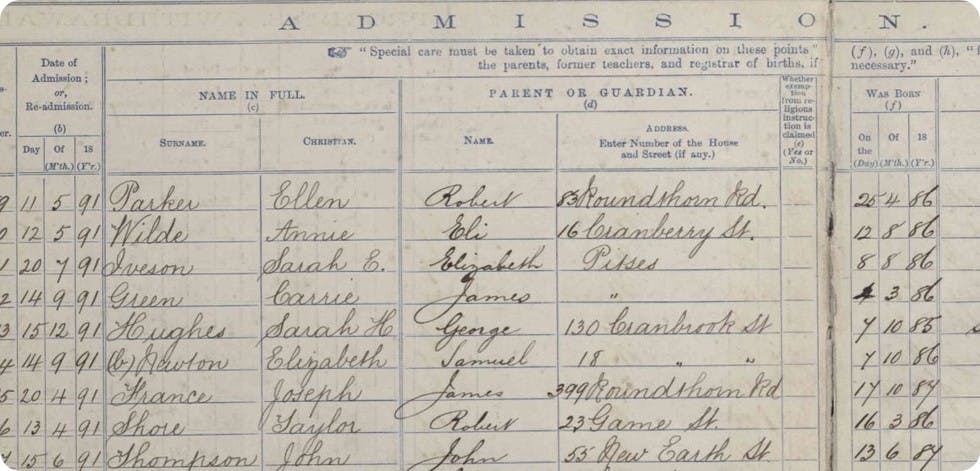 ADMISSION.
☞ "Special care must be taken to obtain exact information on these points"
the parents, former teachers, and registrar of births, if
(f), (g), and (h), "
necessary."
Date of
Admission;
or,
Re-admission.
(b)
Day Of (M'th.) 18 (Y'r.)
NAME IN FULL.
(c)
SURNAME. CHRISTIAN.
PARENT OR GUARDIAN.
(d)
NAME. ADDRESS.
Enter Number of the House
and Street (if any.)
Whether
exemp-
tion
from re-
ligious
instruc-
tion is
claimed
(e)
(Yes or
No.)
WAS BORN
(f)
On the (Day) Of (M'th.) 18 (Y'r.)
9 11 5 91 Parker Ellen Robert 83 Roundthorn Rd. 25 4 86
0 12 5 91 Wilde Annie Eli 16 Cranberry St. 12 8 86
1 20 7 91 Iveson Sarah E. Elizabeth Pitses 8 8 86
2 14 9 91 Green Carrie James " 4 3 86
3 15 12 91 Hughes Sarah H George 130 Cranbrook St 7 10 85
4 14 9 91 (b) Newton Elizabeth Samuel 18 " " 7 10 86
5 20 4 91 France Joseph James 399 Roundthorn Rd 17 10 84
6 13 4 91 Shore Taylor Robert 23 Game St. 16 3 86
7 15 6 91 Thompson John John 55 New Earth St 13 6 84